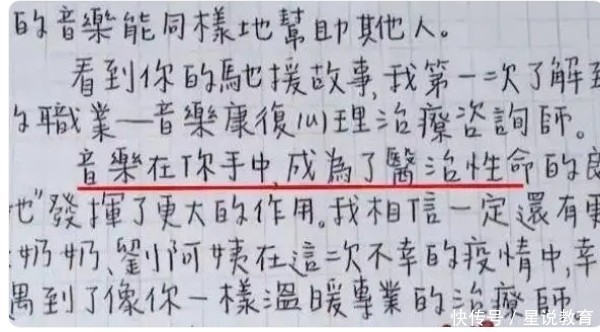 的音樂能同樣地幫助其他人。
看到你的馳援故事,我第一次了解到
職業—音樂康復心理治療咨詢師。
音樂在你手中,成為了醫治性命的良
也"發揮了更大的作用。我相信一定還有更
奶奶、劉阿姨在這次不幸的疫情中,幸
遇到了像你一樣溫暖專業的治療師
快传号 / 星说教育